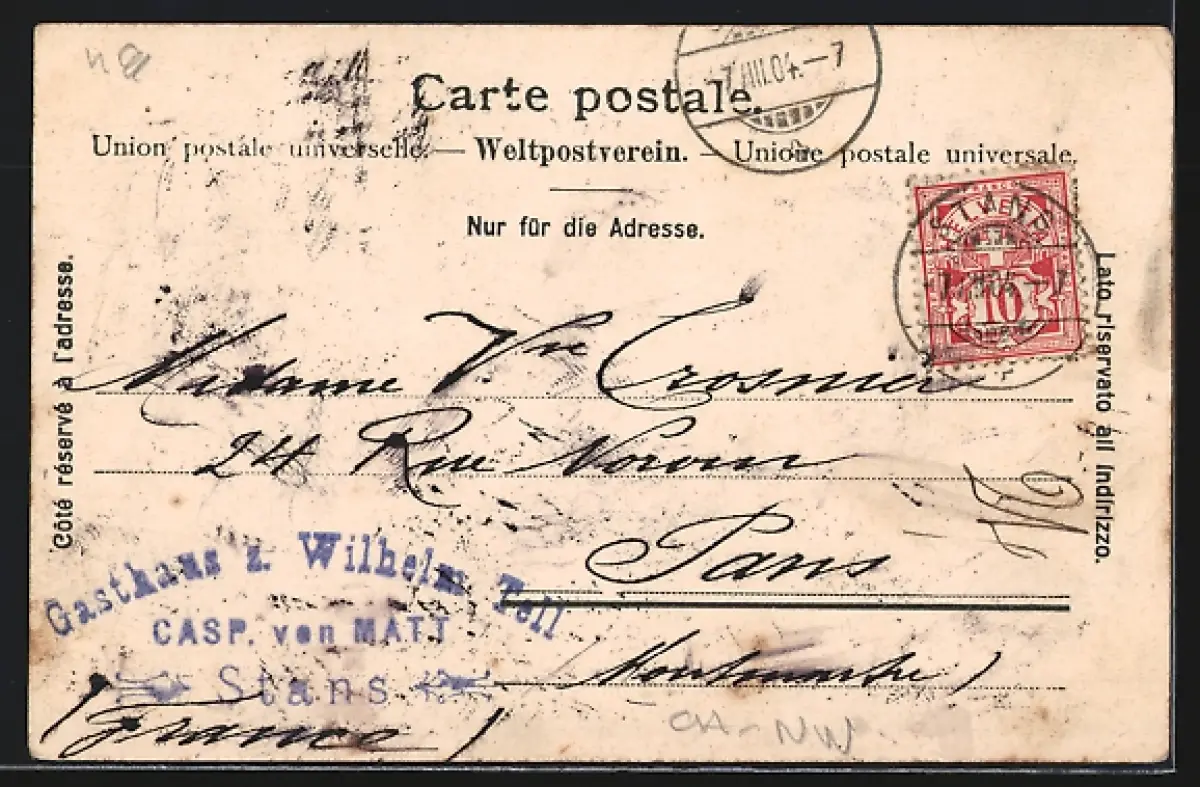 Carte postale.
Union postale universelle. — Weltpostverein. — Unione postale universale.
Nur für die Adresse.
Côté réservé à l'adresse.
Lato riservato all indirizzo.
HELVETIA
10
Madame Vve Crosnier
24 Rue Norvins
Paris
Montmartre)
(France)
Gasthaus z. Wilhelm Tell
CASP. von MATT
Stans
CH-NW